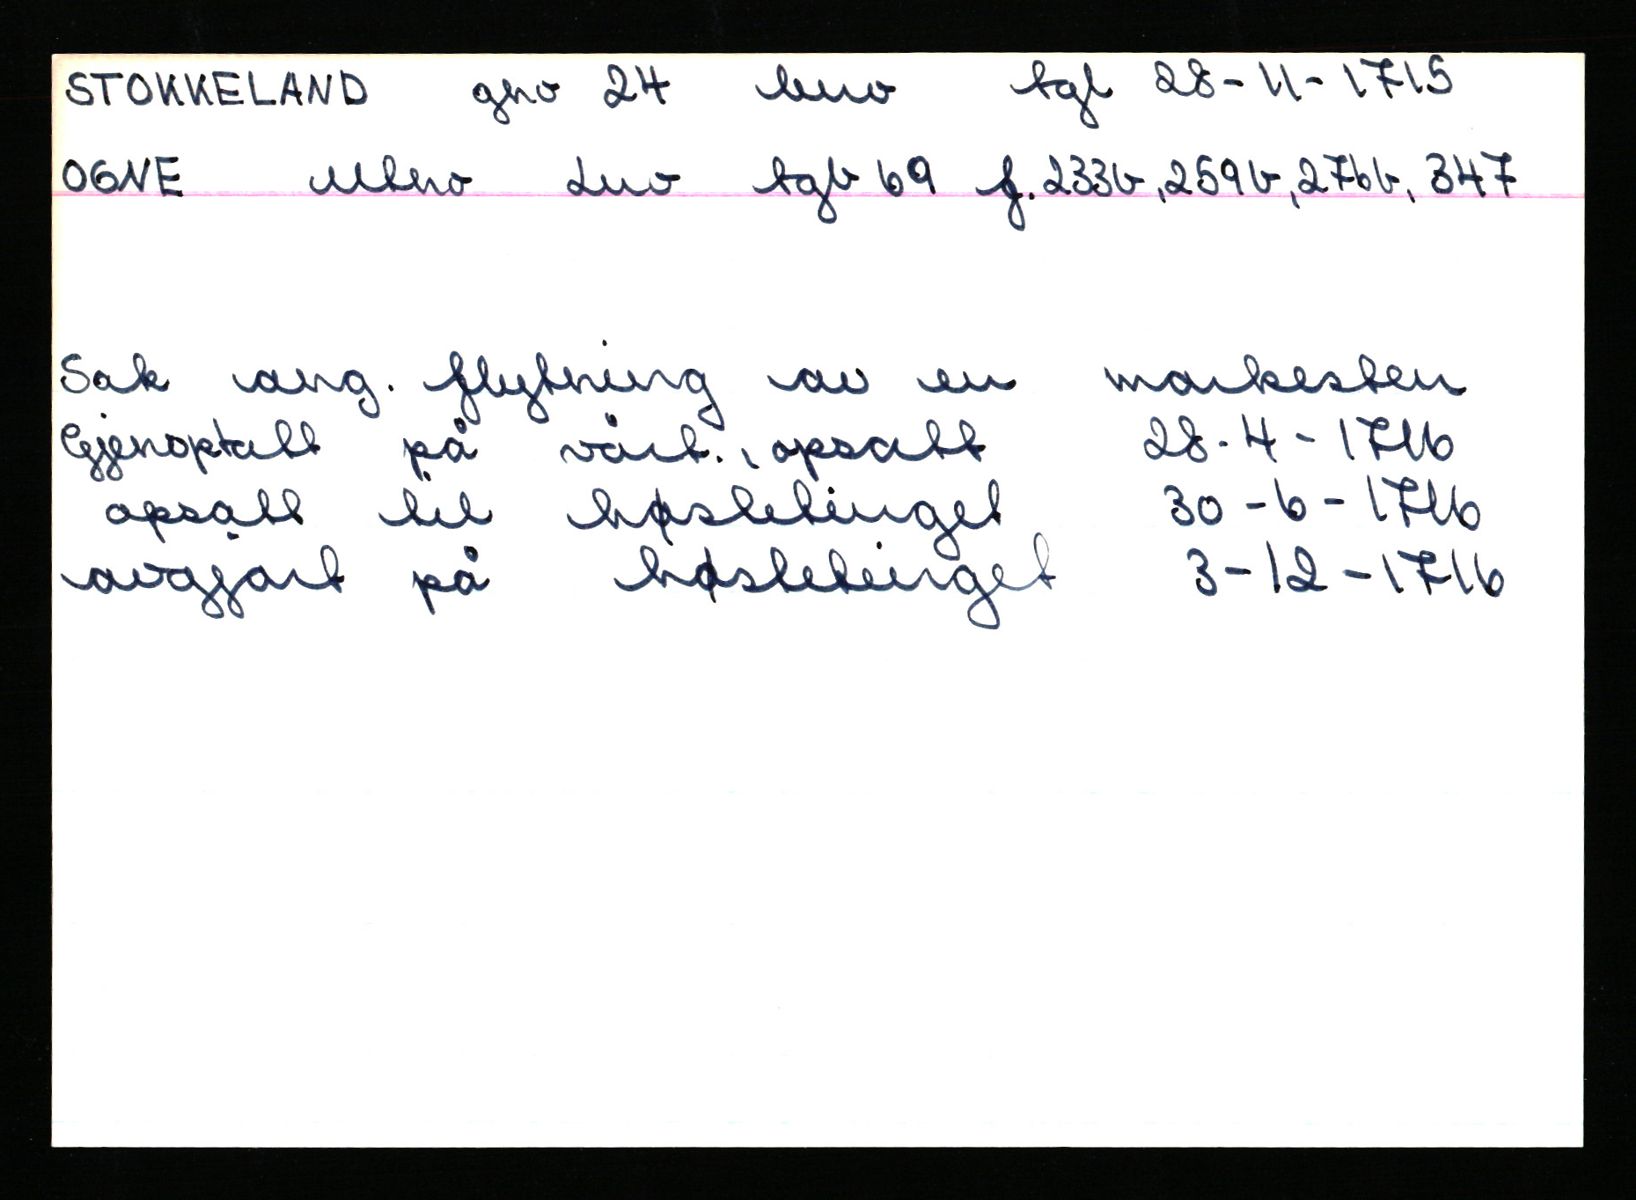 STOKKELAND gno 24 bno tgl 28-11-1715
OGNE Mtno Lno tgb 69 f. 233b, 259b, 276b, 347
Sak ang. flytning av en markesten
Gjenoptatt på vårt., opsatt 28-4-1716
opsatt til høsttetinget 30-6-1716
avgjort på høsttetinget 3-12-1716